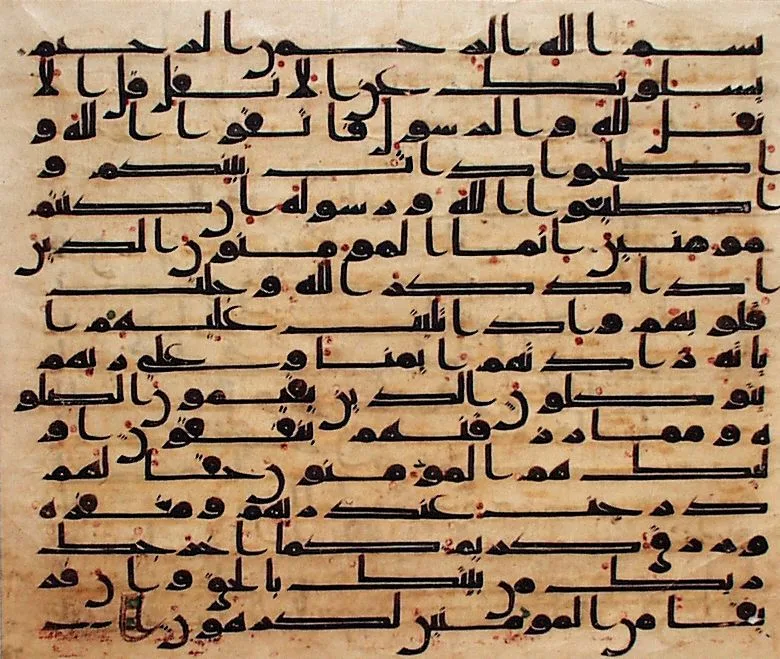 بسم الله الرحمن الرحيم
يسلونك عن الانفل قل الا
نفل لله والرسول فاتقوا الله و
اصلحوا ذات بينكم و
اطيعوا الله ورسوله ان كنتم
مومنين انما المومنون الذين
اذا ذكر الله وجلت
قلوبهم واذا تليت عليهم ا
ياته زادتهم ايمنا وعلى ربهم
يتوكلون الذين يقيمون الصلو
ة ومما رزقنهم ينفقون او
لئك هم المومنون حقا لهم
درجت عند ربهم ومغفرة
ورزق كريم كما اخرجك
ربك من بيتك بالحق وان فر
يقا من المومنين لكرهون